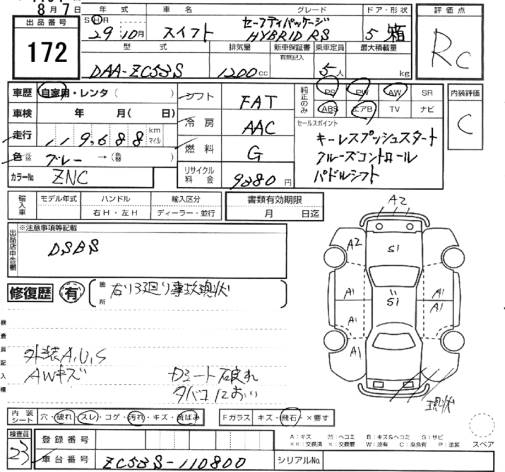 8月7日
出品番号
172
年式 車名 グレード ドア・形状
S H 29年10月 スイフト セーフティパッケージ HYBRID RS 5 箱
型式 排気量 新車保証書 乗車定員 最大積載量
DAA-ZC53S 1200cc 有無記入 5人 kg
評価点
RC
車歴 自家用・レンタ( )
車検 年 月( )
走行 119,688 km マイル
色 グレー →
カラーNo ZNC
シフト FAT
冷房 AAC
燃料 G
リサイクル料金 9380円
純正のみ PS PW AW SR
ABS エアB TV ナビ
内装評価
C
セールスポイント
キーレスプッシュスタート
クルーズコントロール
パドルシフト
輸入車 モデル年式 ハンドル 輸入区分
右H・左H ディーラー・並行
書類有効期限
月 日迄
出品店申告欄
※注意事項等記載
DSBS
修復歴 有 箇所
検査員記入欄
外装A,U,S
AWキズ
タバコにおい
A2
A2
S1
A1
A1
S1
A1
A1
内装シート 穴・破れ・スレ・コゲ・汚れ・キズ・黄ばみ
Fガラス キズ・飛石・×要す
A:キズ U:ヘコミ B:キズ&ヘコミ S:サビ
スペア
検査員
23
登録番号
車台番号 ZC53S-110800
シリアルNo